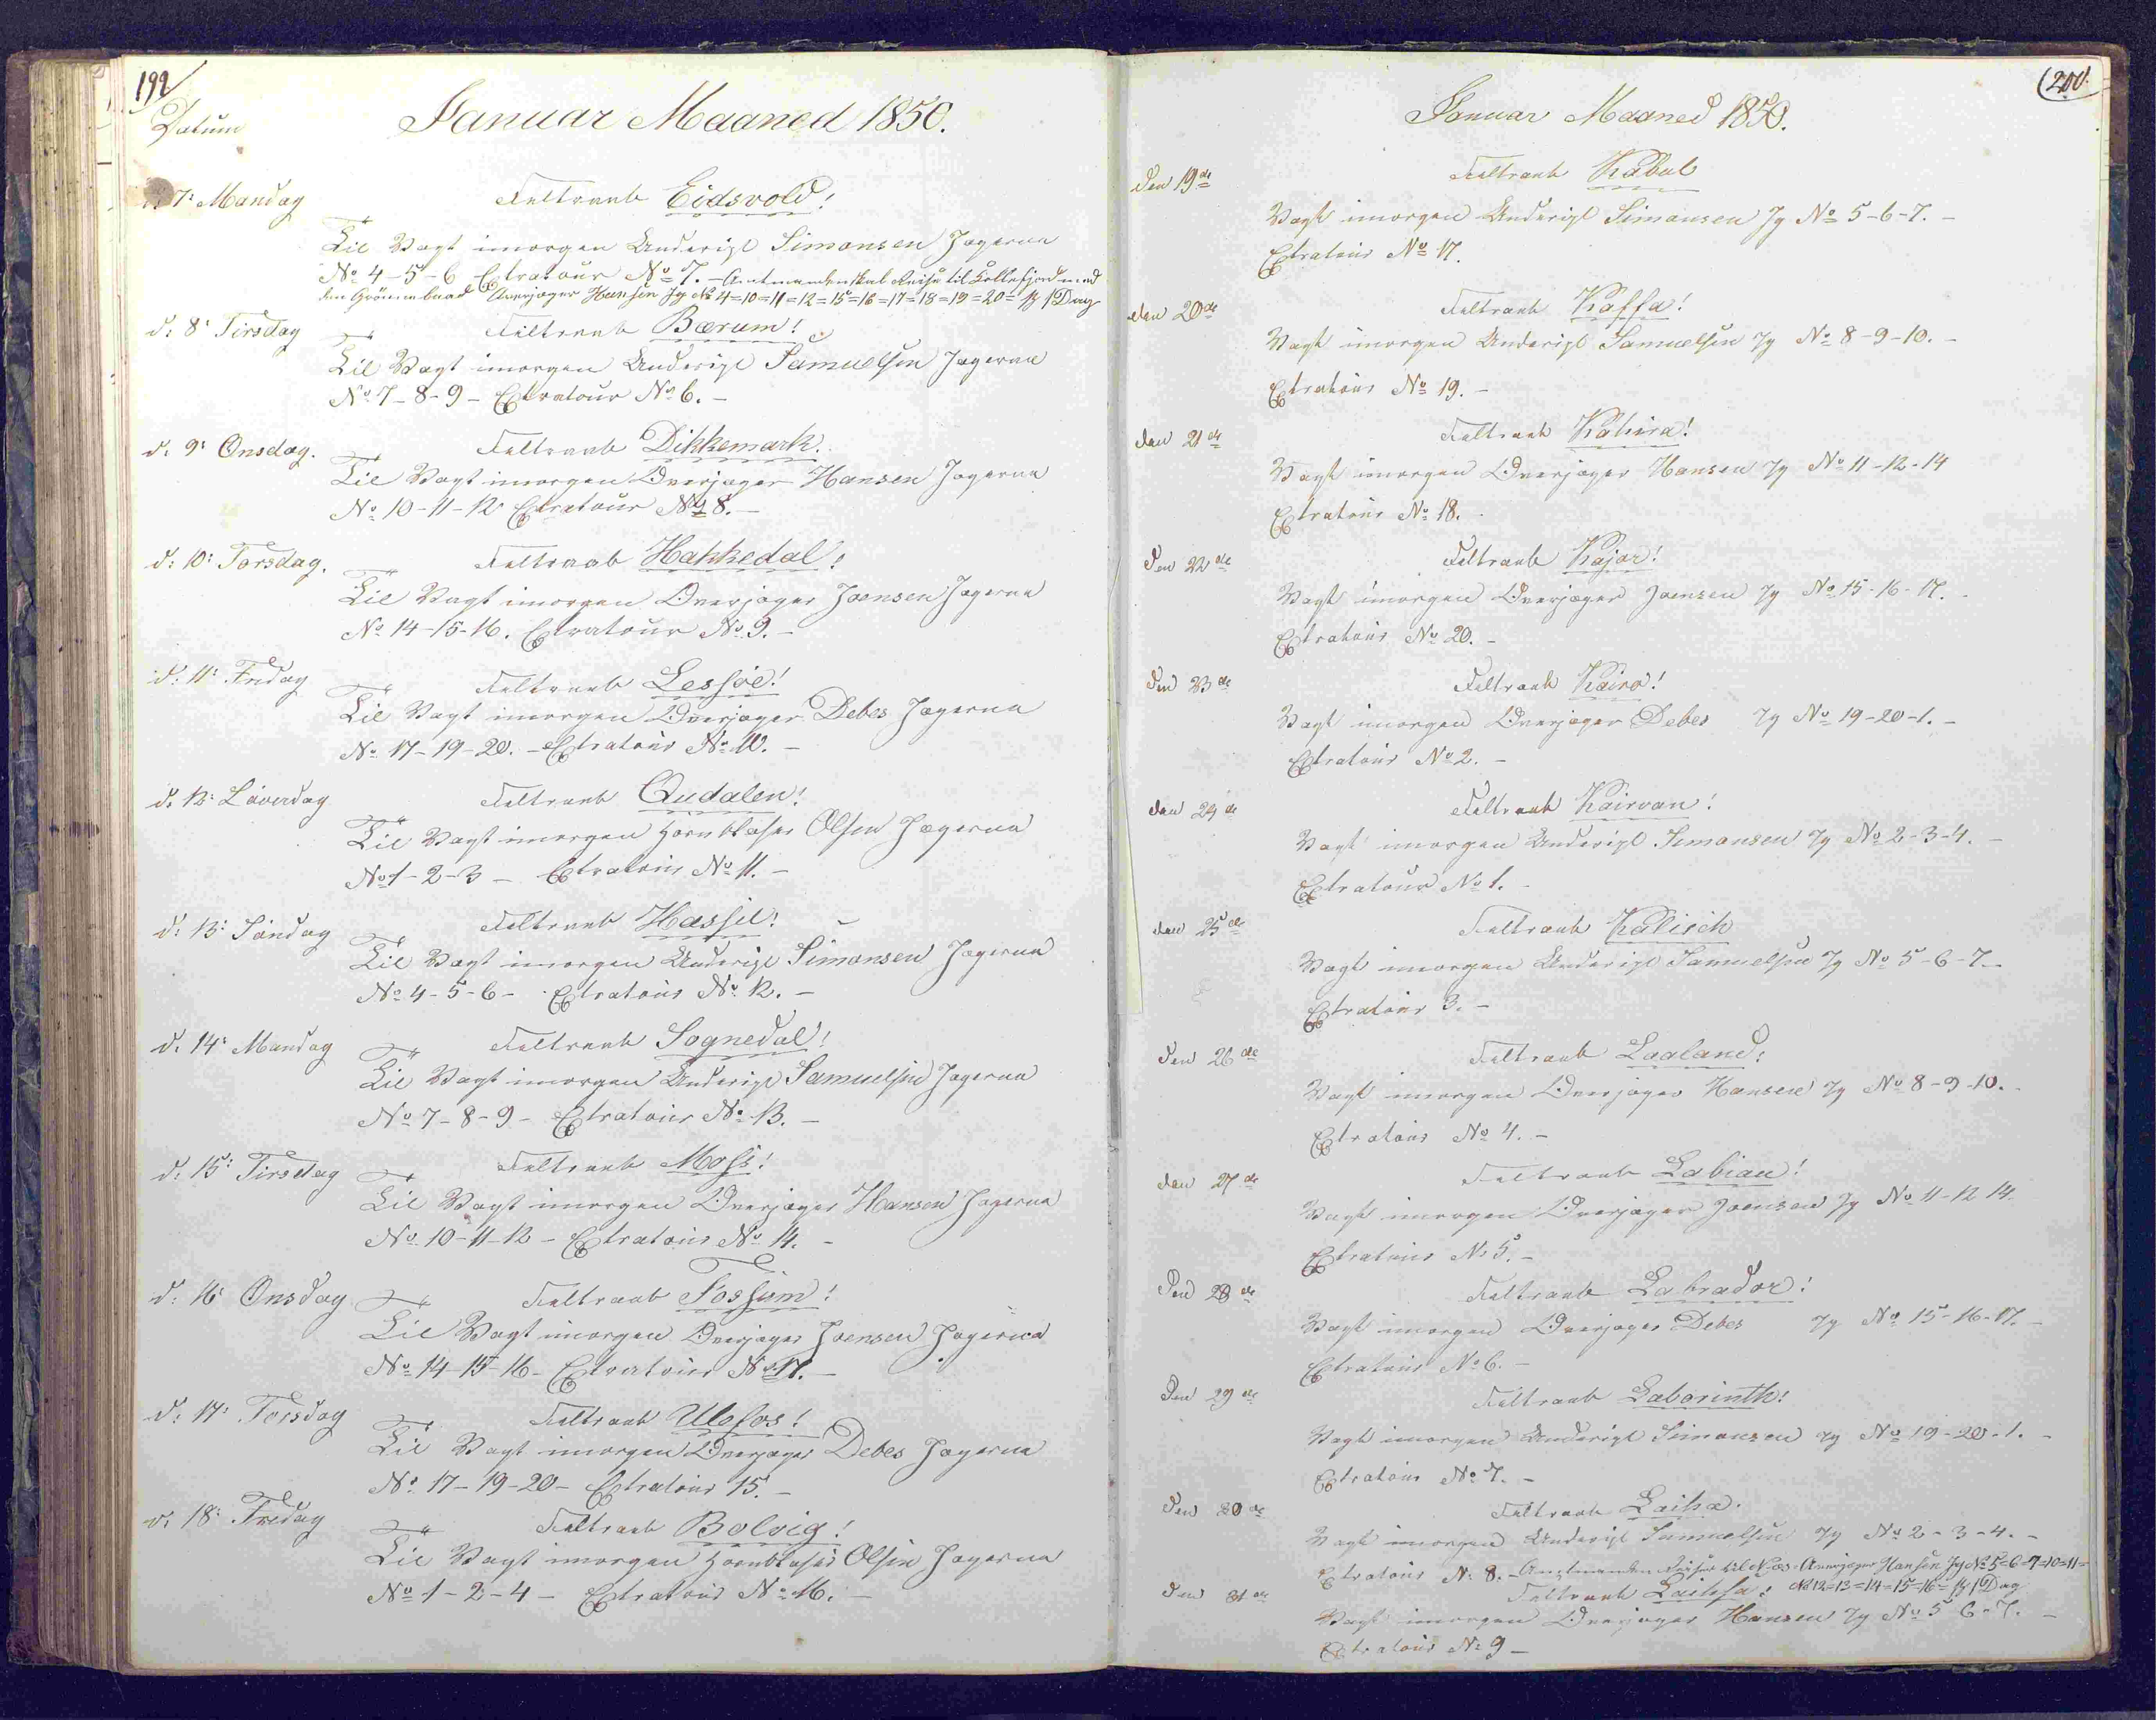 199
Datum
Januar Maaned 1850.
d: 7: Mandag
Feltraab Eidsvold!
Til Vagt imorgen Underigl Simonsen Jægerne
No 4-5-6 Extratour No 7. - Amtmanden skal Reise til Kollefjord med
den Grönne baad Overjæger Hansen Jg No 4=10=11=12=15=16=17=18=19=20= 1 Dag
d: 8: Tirsdag
Feltraab Bærum!
Til Vagt imorgen Underigl Samuelsen Jægerne
No 7-8-9 - Extratour No 6. -
d: 9: Onsdag.
Feltraab Dikkemark.
Til Vagt imorgen Overjæger Hansen Jægerne
No 10-11-12 Extratour No 8. -
d: 10: Torsdag.
Feltraab Hakkedal!
Til Vagt imorgen Overjæger Joensen Jægerne
No 14-15-16. Extratour No 9. -
d: 11: Fredag
Feltraab Lessöe!
Til Vagt imorgen Overjæger Debes Jægerne
No 17-19-20. - Extratour No 10. -
d: 12: Löverdag
Feltraab Qudalen!
Til Vagt imorgen Hornblæser Olsen Jægerne
No 1-2-3 - Extratour No 11. -
d: 13: Söndag
Feltraab Hassel!
Til Vagt imorgen Underigl Simonsen Jægerne
No 4-5-6 - Extratour No 12. -
d: 14: Mandag
Feltraab Sognedal!
Til Vagt imorgen Underigl Samuelsen Jægerne
No 7-8-9 - Extratour No 13. -
d: 15: Tirsdag
Feltraab Moss!
Til Vagt imorgen Overjæger Hansen Jægerne
No 10-11-12 - Extratour No 14. -
d: 16: Onsdag
Feltraab Fossum!
Til Vagt imorgen Overjæger Joensen Jægerne
No 14-15-16 - Extratour No 17. -
d: 17: Torsdag
Feltraab Ulefos!
Til Vagt imorgen Overjæger Debes Jægerne
No 17-19-20 - Extratour 15. -
d: 18: Fredag
Feltraab Bolvig!
Til Vagt imorgen Hornblæser Olsen Jægerne
No 1-2-4 - Extratour No 16. -
200.
Januar Maaned 1850.
Den 19de
Feltraab Kabul
Vagt imorgen Underigl Simonsen Jg No 5-6-7. -
Extratour No 17.
den 20de
Feltraab Kaffa!
Vagt imorgen Underigl Samuelsen Jg No 8-9-10. -
Extratour No 19. -
den 21de
Feltraab Kahira!
Vagt imorgen Overjæger Hansen Jg No 11-12-14
Extratour No 18.
Den 22de
Feltraab Kajar!
Vagt imorgen Overjæger Joensen Jg No 15-16-17.
Extratour No 20. -
Den 23de
Feltraab Kairo!
Vagt imorgen Overjæger Debes Jg No 19-20-1. -
Extratour No 2. -
den 24de
Feltraab Kairvan!
Vagt imorgen Underigl Simonsen Jg No 2-3-4. -
Extratour No 1. -
den 25de
Feltraab Kalisch
Vagt imorgen Underigl Samuelsen Jg No 5-6-7 -
Extratour 3. -
Den 26de
Feltraab Laaland!
Vagt imorgen Overjæger Hansen Jg No 8-9-10.
Extratour No 4. -
den 27de
Feltraab Labiau!
Vagt imorgen Overjæger Joensen Jg No 11-12 14.
Extratour No 5. -
Den 28de
Feltraab Labrador!
Vagt imorgen Overjæger Debes Jg No 15-16-17. -
Extratour No 6. -
Den 29de
Feltraab Laborinth!
Vagt imorgen Underigl Simonsen Jg No 19-20-1. -
Extratour No 7. -
Den 30de
Feltraab Laiha.
Vagt imorgen Underigl Samuelsen Jg No 2-3-4. -
Extratour No 8. - Amtmanden Reiser til Næs - Overjæger Hansen Jg No 5=6=7=10=11=
No 12=13=14=15=16= 1 Dag
Den 31de
Feltraab
Vagt imorgen Overjæger Hansen Jg No 5 6-7. -
Extratour No 9 -